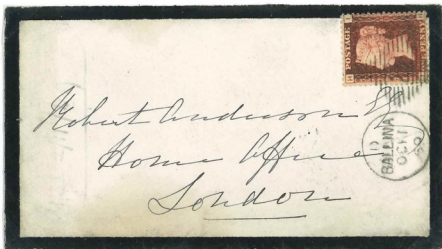 POSTAGE
PENNY
Robert Anderson
Home Office
London
BALLINA
OC 11